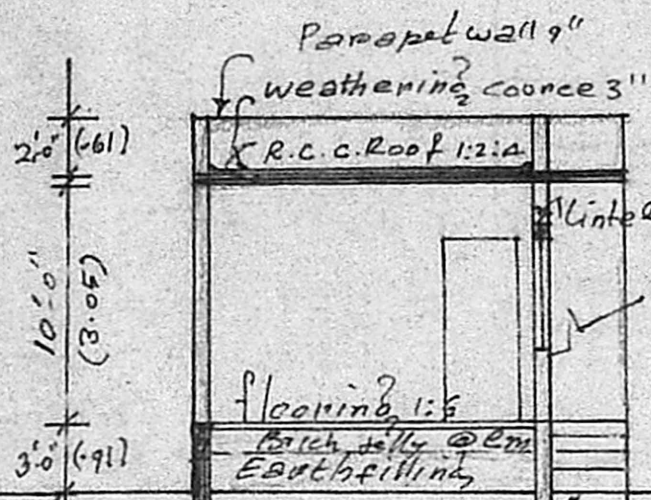 Parapet wall 9"
weathering coorce 3"
2'.0" (.61)
R.C.C. Roof 1:2:4
Linte
10'-0"
(3.05)
flooring 1:5
3'.0" (.91)
Brick Jelly @ Cm
Earthfilling